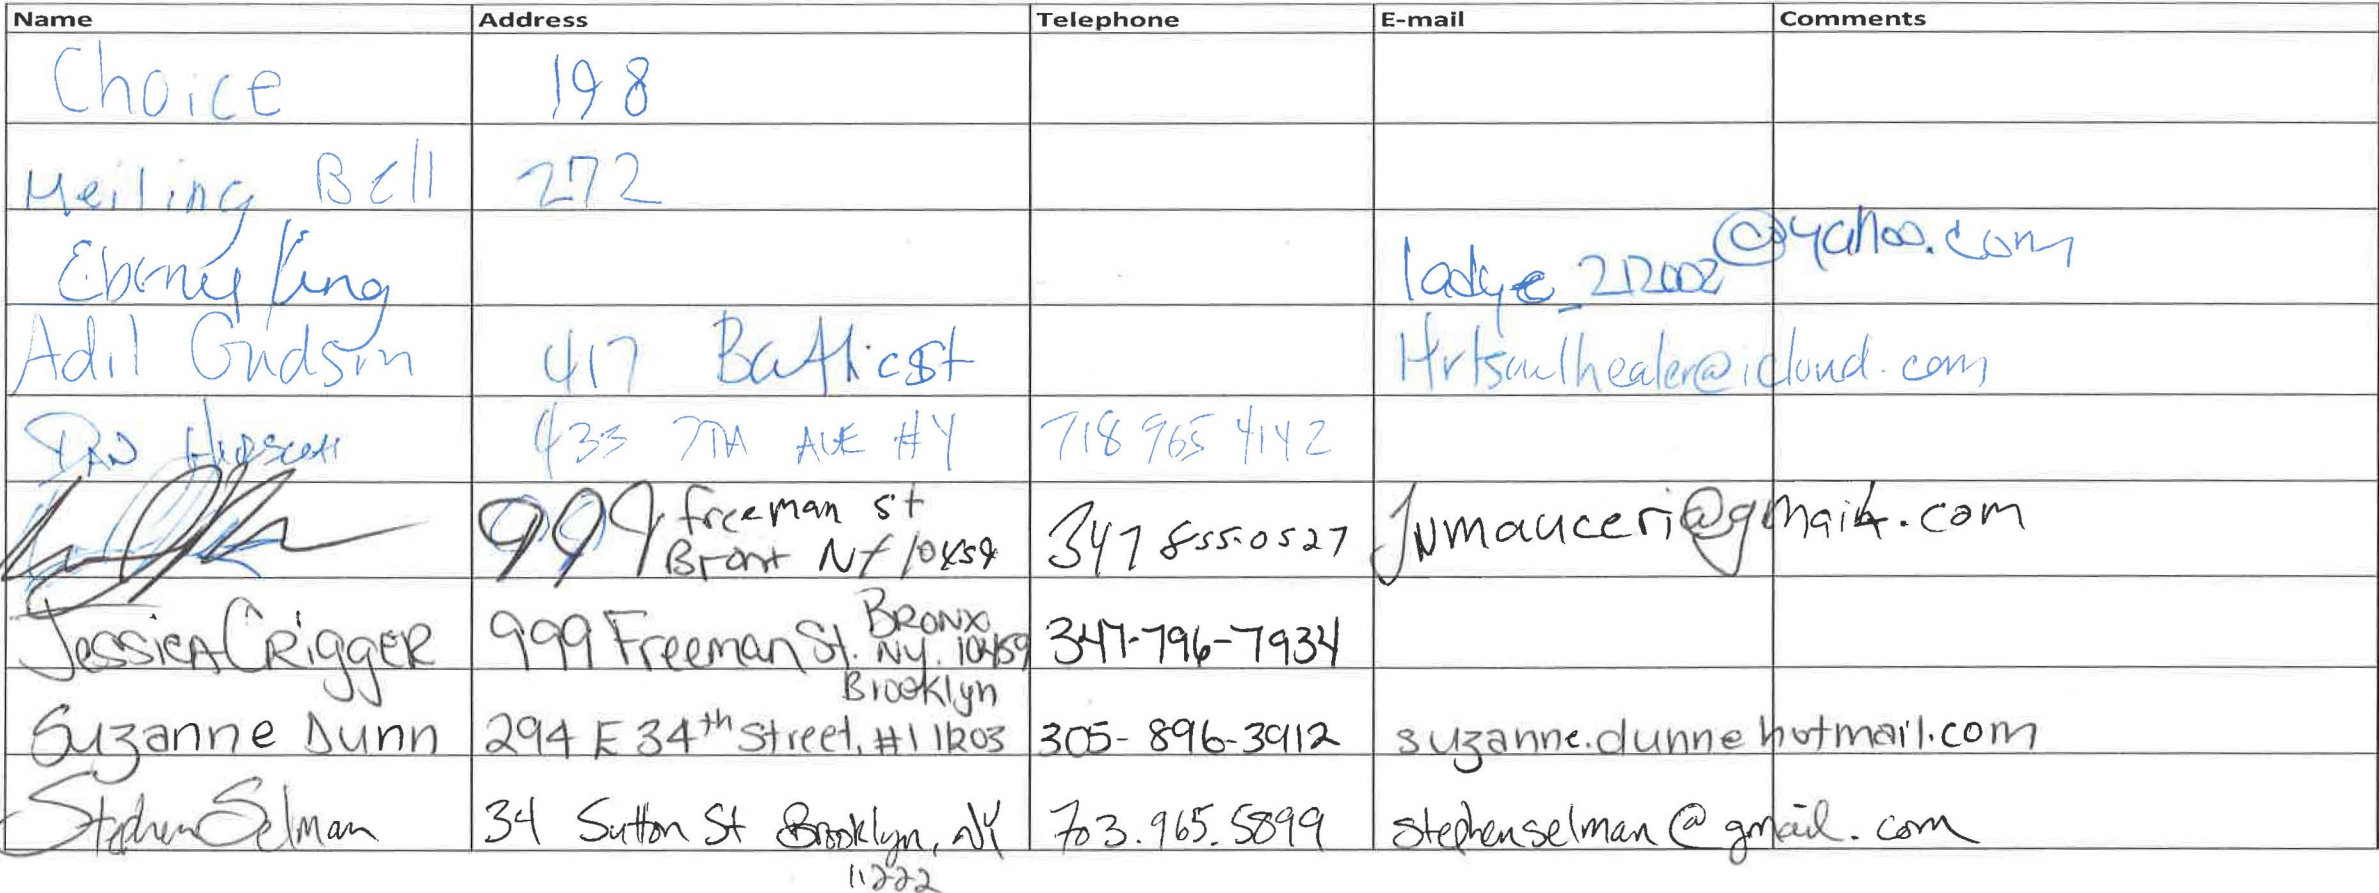 Name Address Telephone E-mail Comments
Choice 198
Meiling Bell 272
Ebony King ladye_212002@yahoo.com
Adil Gudson 417 Baltic st Hrtsoulhealer@icloud.com
DAN 433 7TH AVE #4 718 965 4142
999 freeman st Bronx NY 10459 347 855-0527 Jvmauceri@gmail.com
Jessica Crigger 999 Freeman St. Bronx NY. 10459 347-796-7934
Suzanne Dunn 294 E 34th Street, #1 11203 Brooklyn 305-896-3912 suzanne.dunne hotmail.com
Stephen Selman 34 Sutton St Brooklyn, NY 11222 703.965.5899 stephenselman@gmail.com